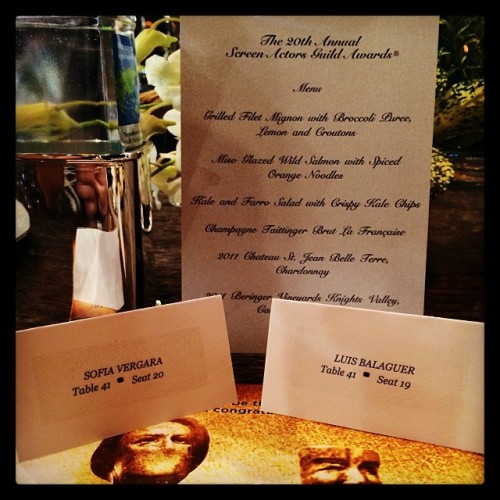 The 20th Annual
Screen Actors Guild Awards®
Menu
Grilled Filet Mignon with Broccoli Puree,
Lemon and Croutons
Miso Glazed Wild Salmon with Spiced
Orange Noodles
Kale and Farro Salad with Crispy Kale Chips
Champagne Taittinger Brut La Française
2011 Chateau St. Jean Belle Terre,
Chardonnay
Beringer Vineyards Knights Valley,
SOFIA VERGARA
Table 41 ■ Seat 20
LUIS BALAGUER
Table 41 ■ Seat 19